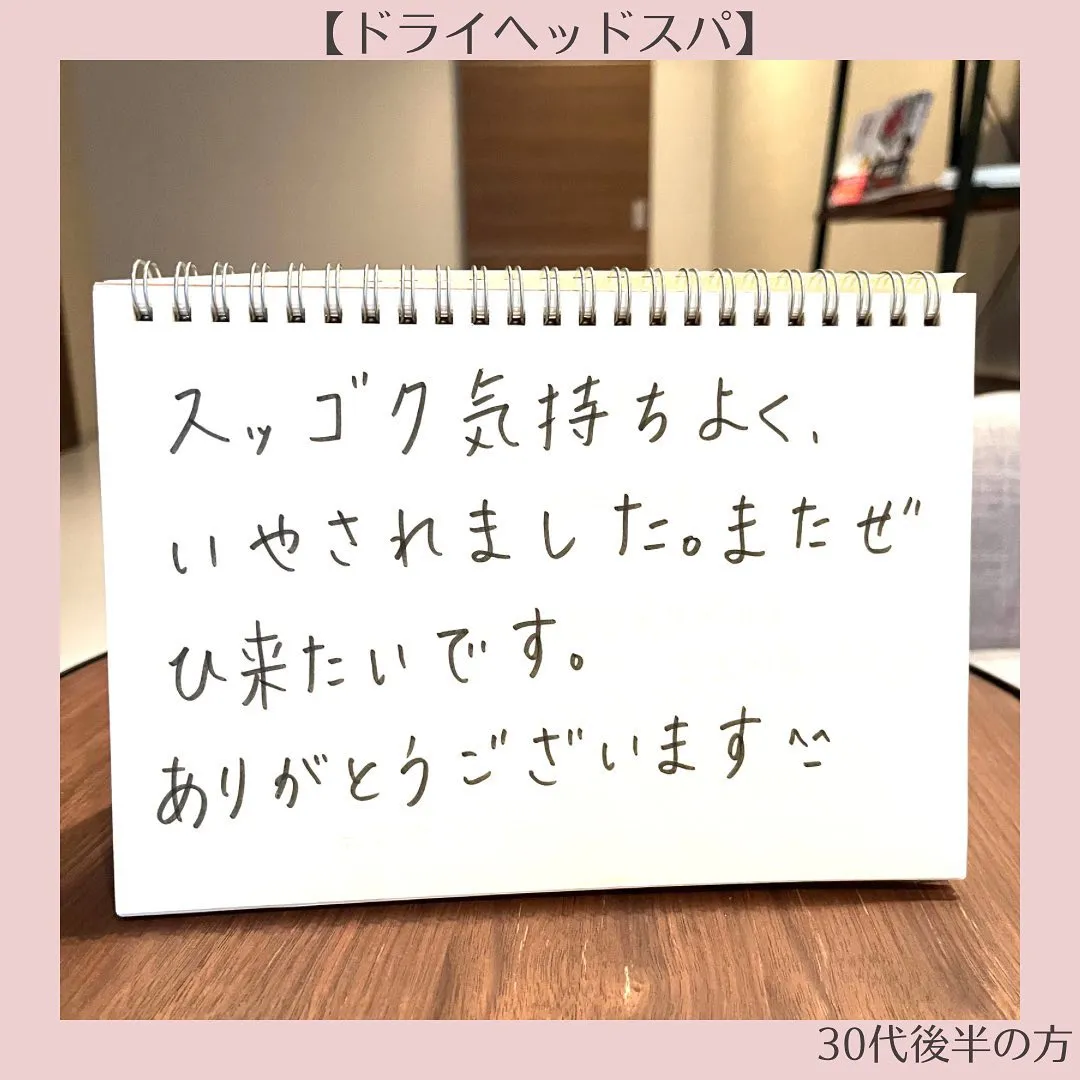 【ドライヘッドスパ】
スッゴク気持ちよく、
いやされました。またぜ
ひ来たいです。
ありがとうございます^^
30代後半の方